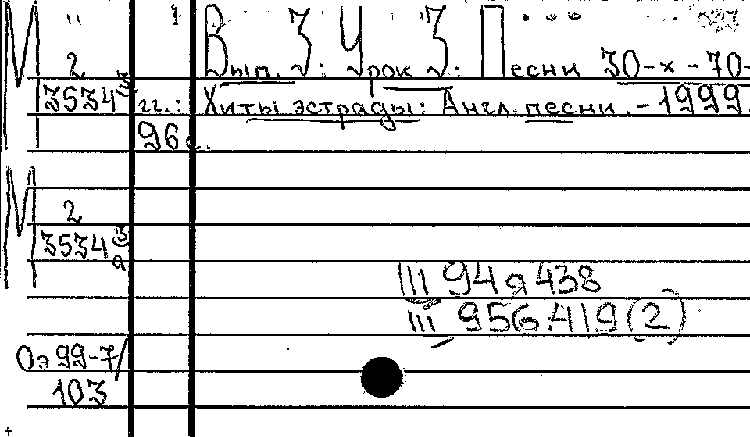 1 Вып. 3: Урок 3: Песни 30-х - 70-
гг.: Хиты эстрады: Англ. песни. - 1999.
96 с.
М 2
3534
М 2
3534
III 94 438
III 956.419 (2)
Оэ 99-7/
103